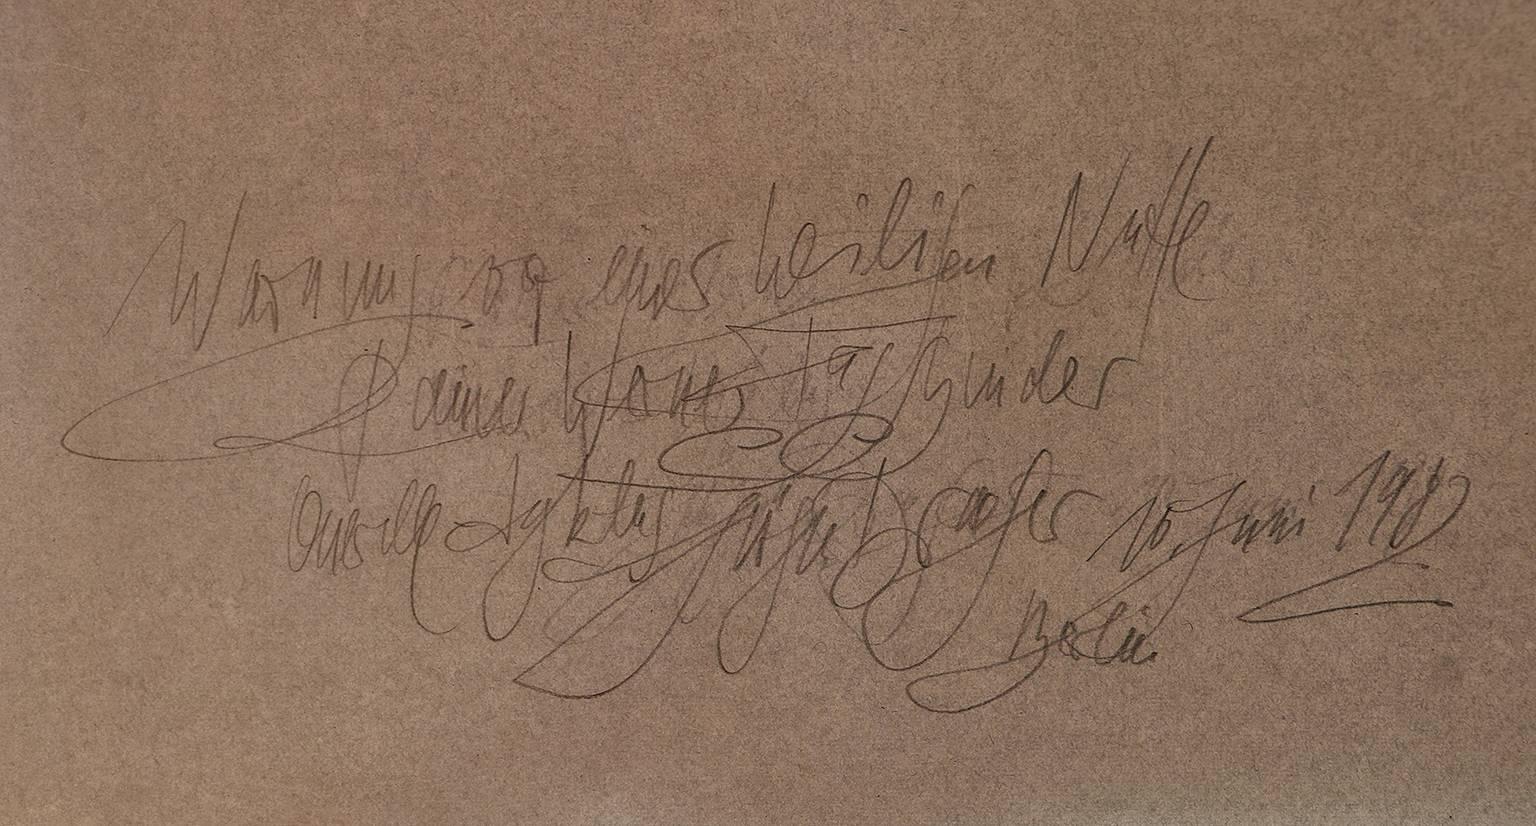 Warnung vor einer heiligen Nutte
Rainer Werner Fassbinder
Querelle-Zyklus Jürgen Draeger 10. Juni 1982
Berlin